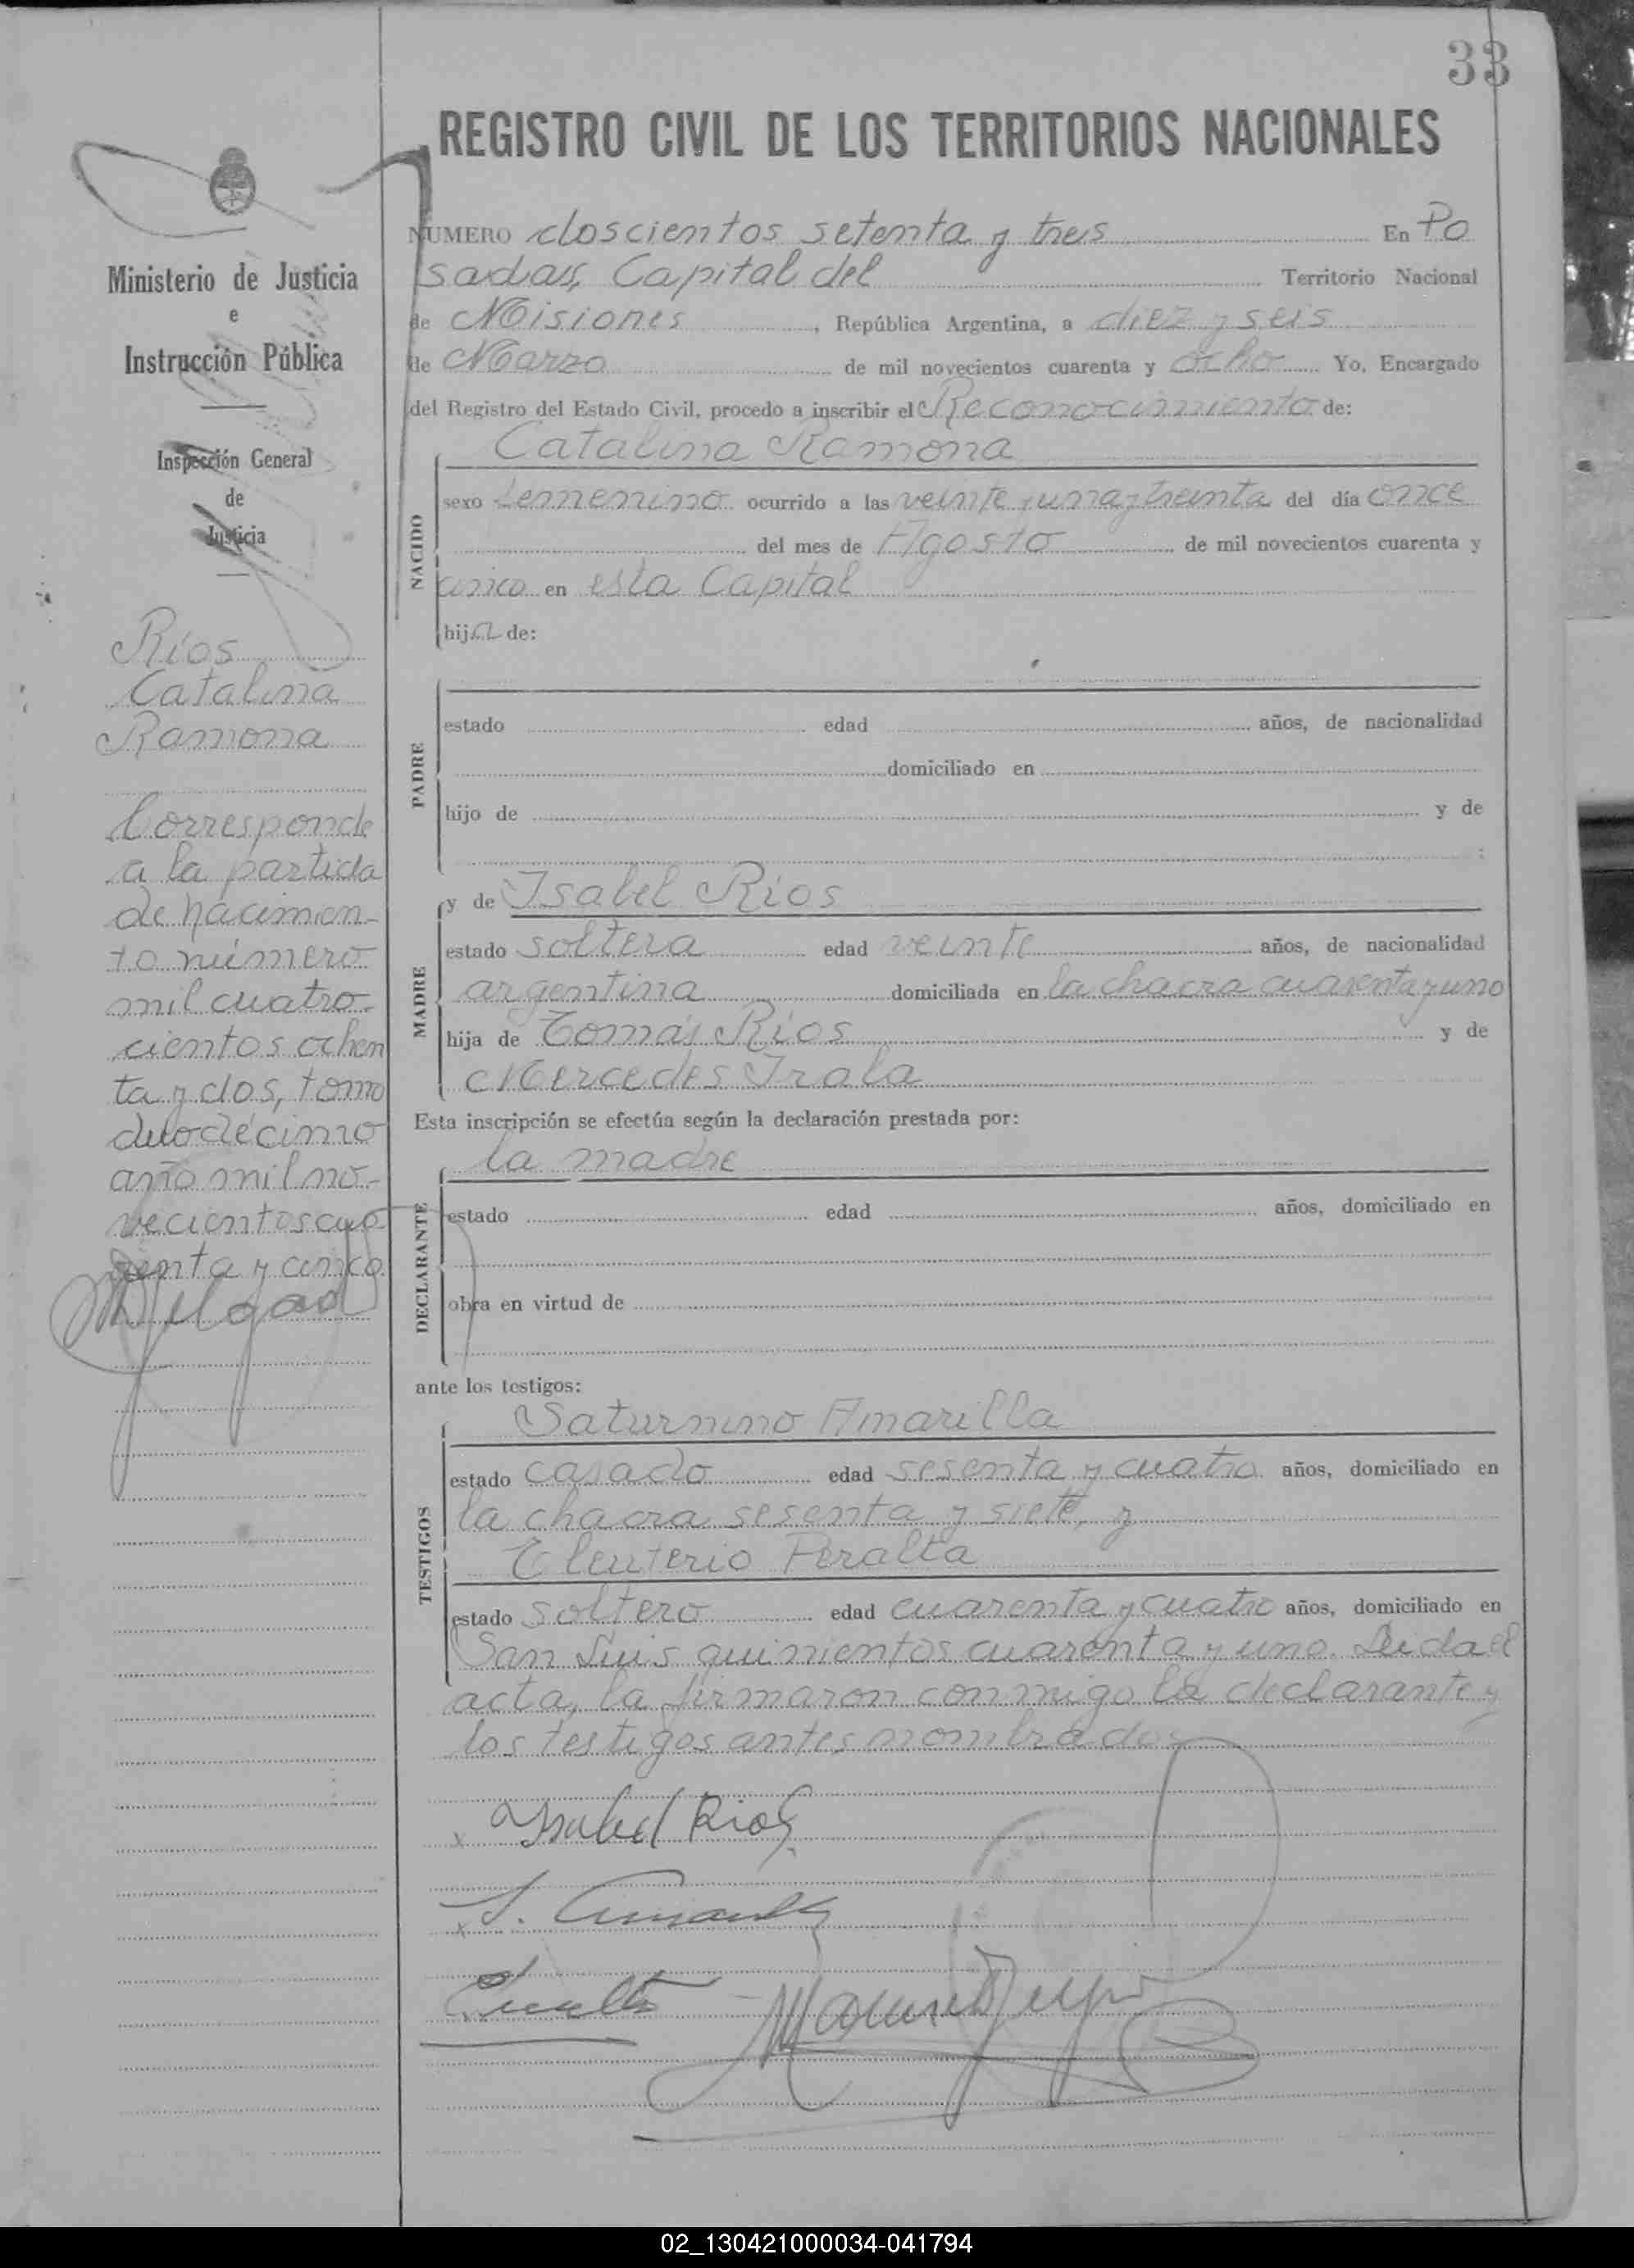 33
REGISTRO CIVIL DE LOS TERRITORIOS NACIONALES
Ministerio de Justicia
e
Instrucción Pública
Inspección General
de
Justicia
Ríos
Catalina
Ramona
Corresponde
a la partida
de nacimien-
to número
mil cuatro-
cientos ochen
ta y dos, tomo
duodécimo
año mil no-
vecientos cua
renta y cinco
NUMERO doscientos setenta y tres En Po
sadas, Capital del Territorio Nacional
de Misiones, República Argentina, a diez y seis
de Marzo de mil novecientos cuarenta y ocho Yo, Encargado
del Registro del Estado Civil, procedo a inscribir el Reconocimiento de:
Catalina Ramona
NACIDO
sexo femenino ocurrido a las veinte y una y treinta del día once
del mes de Agosto de mil novecientos cuarenta y
cinco en esta Capital
hija de:
PADRE
estado edad años, de nacionalidad
domiciliado en
hijo de y de
MADRE
y de Isabel Ríos
estado soltera edad veinte años, de nacionalidad
argentina domiciliada en la chacra cuarenta y uno
hija de Tomás Ríos y de
Mercedes Irala
Esta inscripción se efectúa según la declaración prestada por:
la madre
DECLARANTE
estado edad años, domiciliado en
obra en virtud de
ante los testigos:
Saturnino Amarilla
TESTIGOS
estado casado edad sesenta y cuatro años, domiciliado en
la chacra sesenta y siete, y
Eleuterio Peralta
estado soltero edad cuarenta y cuatro años, domiciliado en
San Luis quinientos cuarenta y uno. Leida el
acta, la firmaron conmigo la declarante y
los testigos antes nombrados
x Isabel Rios
x S. Amarilla
02_130421000034-041794